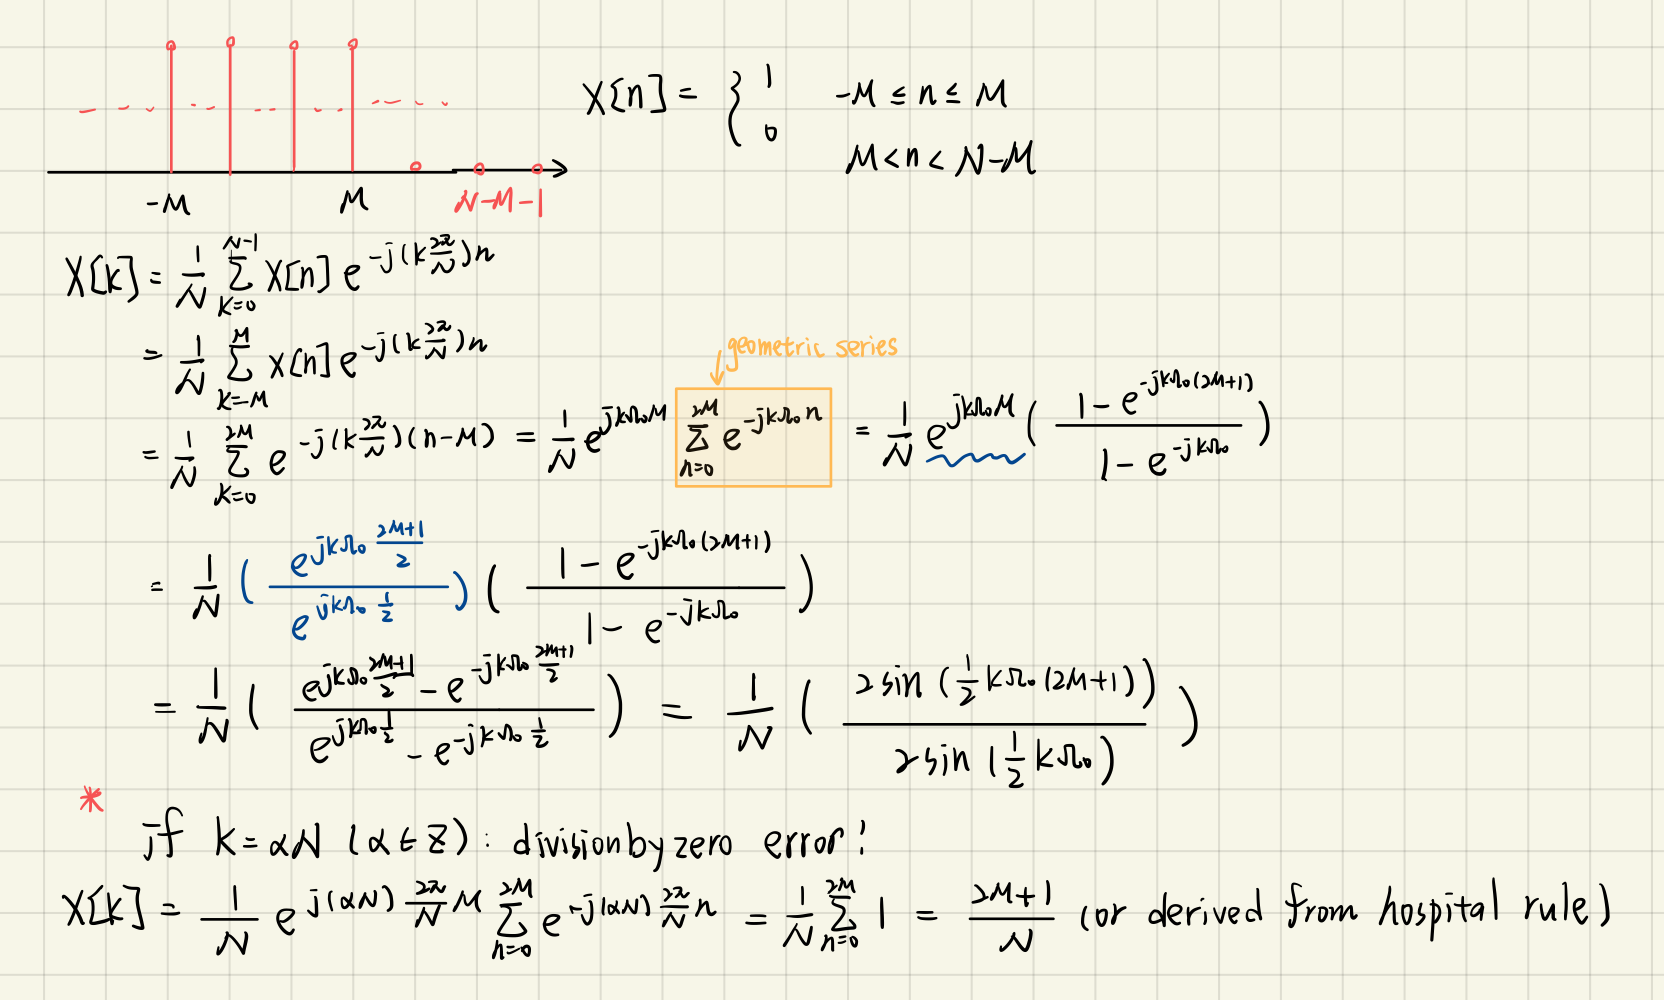 x[n] = { 1 -M ≤ n ≤ M
0 M < n < N-M
-M M N-M-1
X[k] = 1/N ∑_{k=0}^{N-1} x[n] e^{-j(k 2π/N)n}
= 1/N ∑_{k=-M}^{M} x[n] e^{-j(k 2π/N)n}
geometric series
= 1/N ∑_{k=0}^{2M} e^{-j(k 2π/N)(n-M)} = 1/N e^{jkΩ₀M} ∑_{n=0}^{2M} e^{-jkΩ₀n} = 1/N e^{jkΩ₀M} ( (1 - e^{-jkΩ₀(2M+1)}) / (1 - e^{-jkΩ₀}) )
= 1/N ( e^{jkΩ₀ (2M+1)/2} / e^{jkΩ₀ 1/2} ) ( (1 - e^{-jkΩ₀(2M+1)}) / (1 - e^{-jkΩ₀}) )
= 1/N ( (e^{jkΩ₀ (2M+1)/2} - e^{-jkΩ₀ (2M+1)/2}) / (e^{jkΩ₀ 1/2} - e^{-jkΩ₀ 1/2}) ) = 1/N ( 2 sin (1/2 kΩ₀(2M+1)) / 2 sin (1/2 kΩ₀) )
*
if k = αN (α ∈ Z) : division by zero error!
X[k] = 1/N e^{j(αN) 2π/N M} ∑_{n=0}^{2M} e^{-j(αN) 2π/N n} = 1/N ∑_{n=0}^{2M} 1 = (2M+1)/N (or derived from hospital rule)